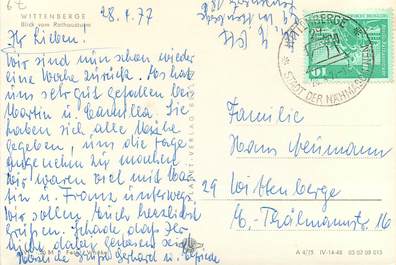 62
WITTENBERGE
Blick vom Rathausturm
28.4.77
Ihr Lieben!
Wir sind nun schon wieder
eine Woche zurück. Es hat
uns sehr gut gefallen bei
Martin u. Camilla. Sie
haben sich alle Mühe
gegeben, uns die Tage
angenehm zu machen
wir waren viel mit Mar-
tin u. Franz unterwegs
Wir sollen Euch herzlich
grüßen. Schade, daß Ihr
nicht dabei gewesen seid.
Herzliche Grüße Gerhard u. Elfriede
WITTENBERGE
STADT DER NÄHMA
10
Familie
Hans Neumann
29 Wittenberge
E.-Thälmannstr. 16
A 4/75 IV-14-48 03 02 08 015